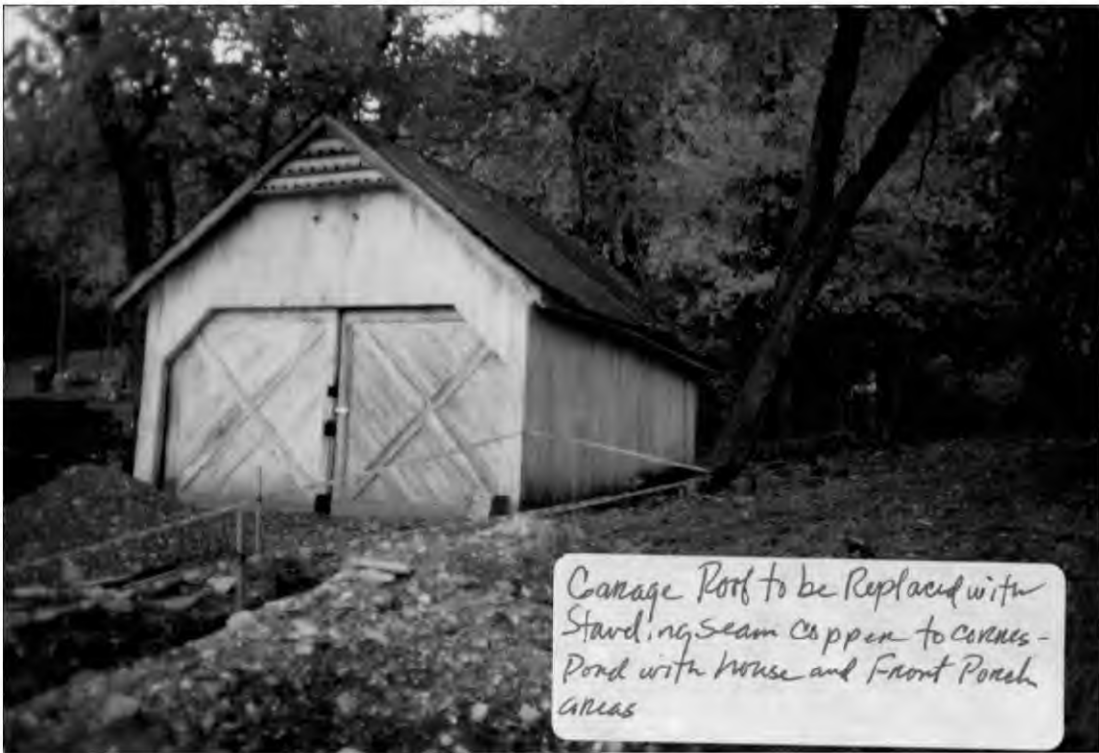 Garage Roof to be Replaced with
Standing Seam Copper to corres-
Pond with house and Front Porch
areas